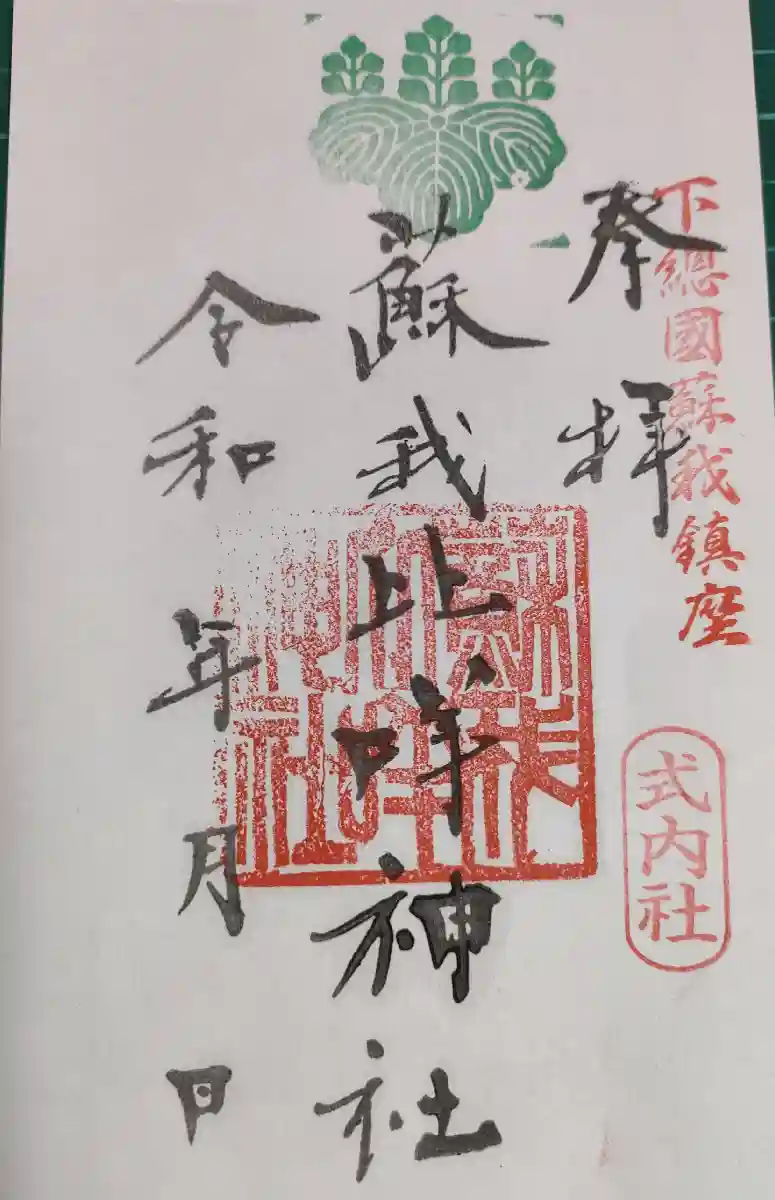 下總國蘇我鎮座
奉拝
式内社
蘇我比咩神社
令和 年 月 日
蘇我比咩神社